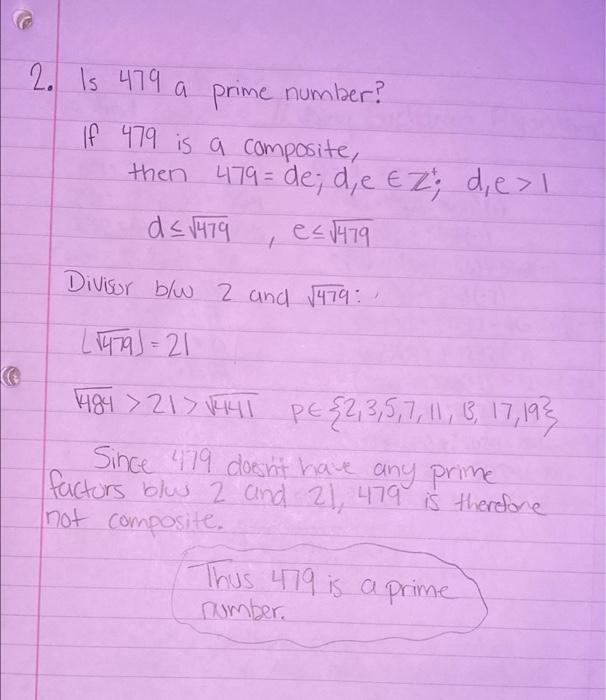 2. Is 479 a prime number?
If 479 is a composite,
then 479 = de; d,e ∈ Z⁺; d,e > 1
d ≤ √479 , e ≤ √479
Divisor b/w 2 and √479:
⌊√479⌋ = 21
√484 > 21 > √441 p ∈ {2,3,5,7,11,13,17,19}
Since 479 doesn't have any prime
factors b/w 2 and 21, 479 is therefore
not composite.
Thus 479 is a prime
number.